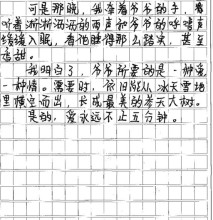 可是那晚，我牵着爷爷的手，听着淅淅沥沥的雨声和爷爷的呼噜声
缓缓入眠，看他睡得那么踏实，甚至
香甜。
我明白了，爷爷所要的是一种爱
一种情。需要时，依旧能从冰天雪地
里横空而出，长成最美的参天大树。
是的，爱永远不止五分钟。